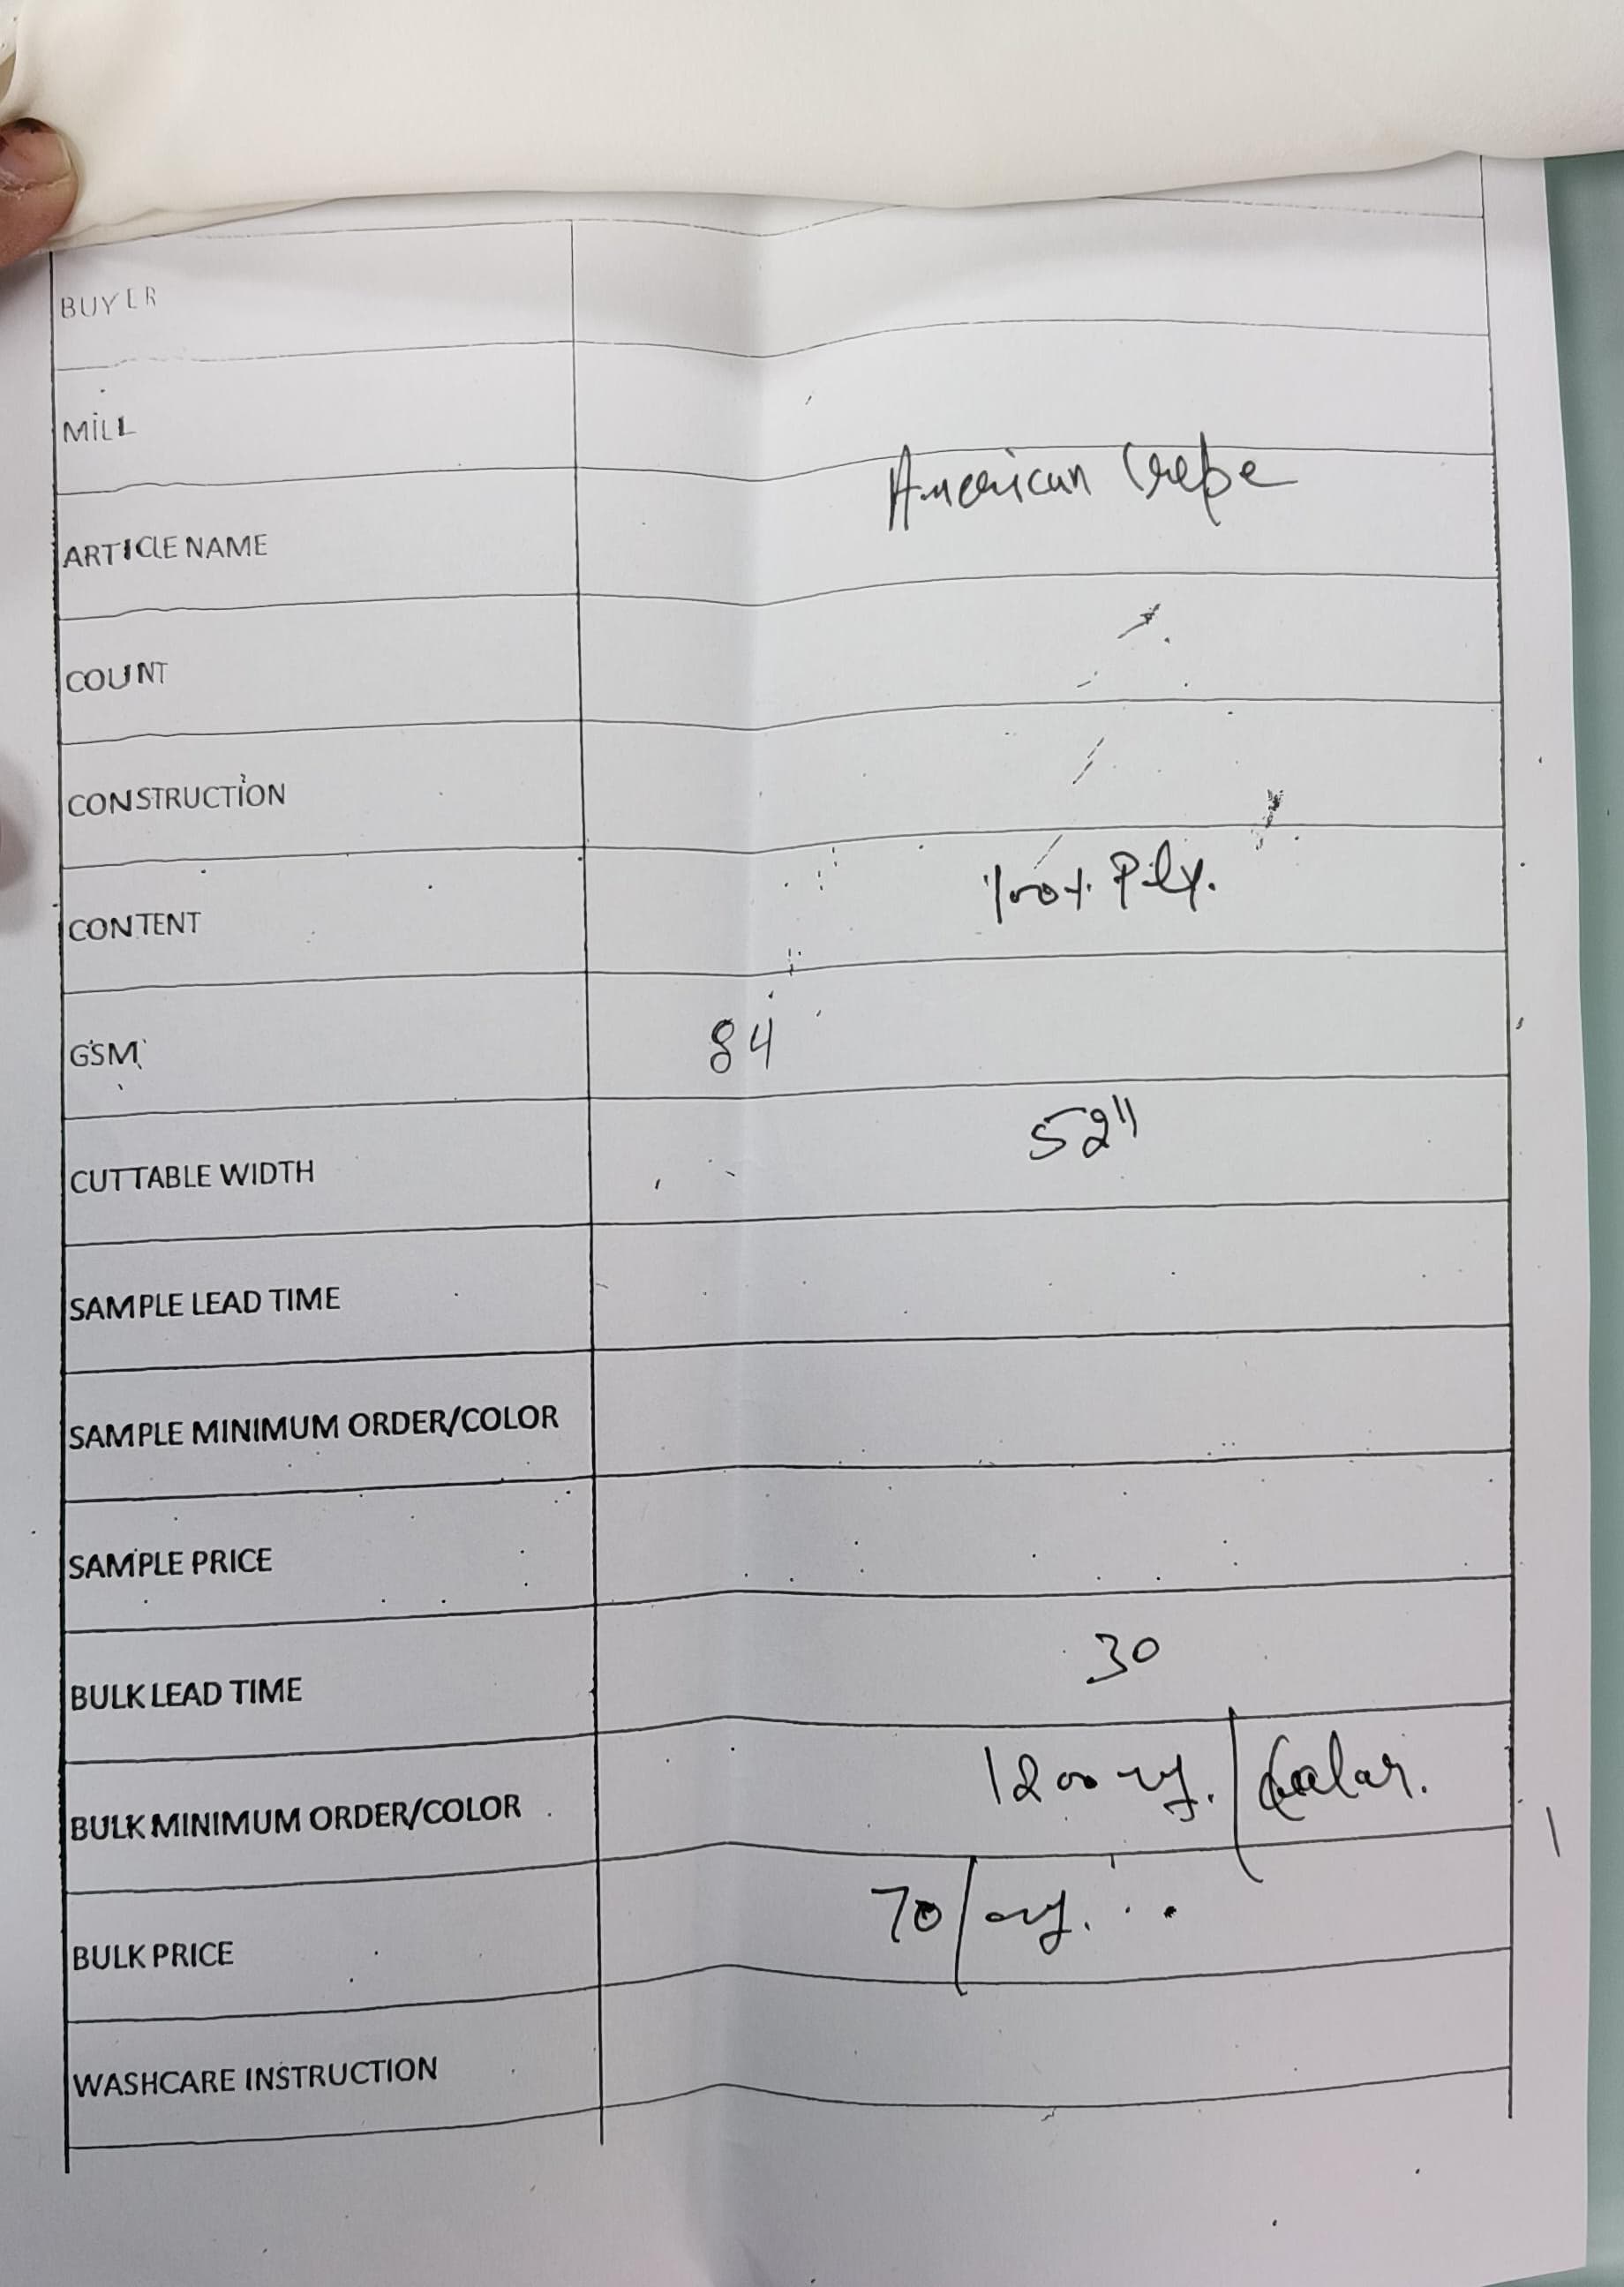 BUYER
MILL
ARTICLE NAME American Crepe
COUNT
CONSTRUCTION
CONTENT 100% Ply.
GSM 84
CUTTABLE WIDTH 52"
SAMPLE LEAD TIME
SAMPLE MINIMUM ORDER/COLOR
SAMPLE PRICE
BULK LEAD TIME 30
BULK MINIMUM ORDER/COLOR 1200
BULK PRICE 70/
WASHCARE INSTRUCTION